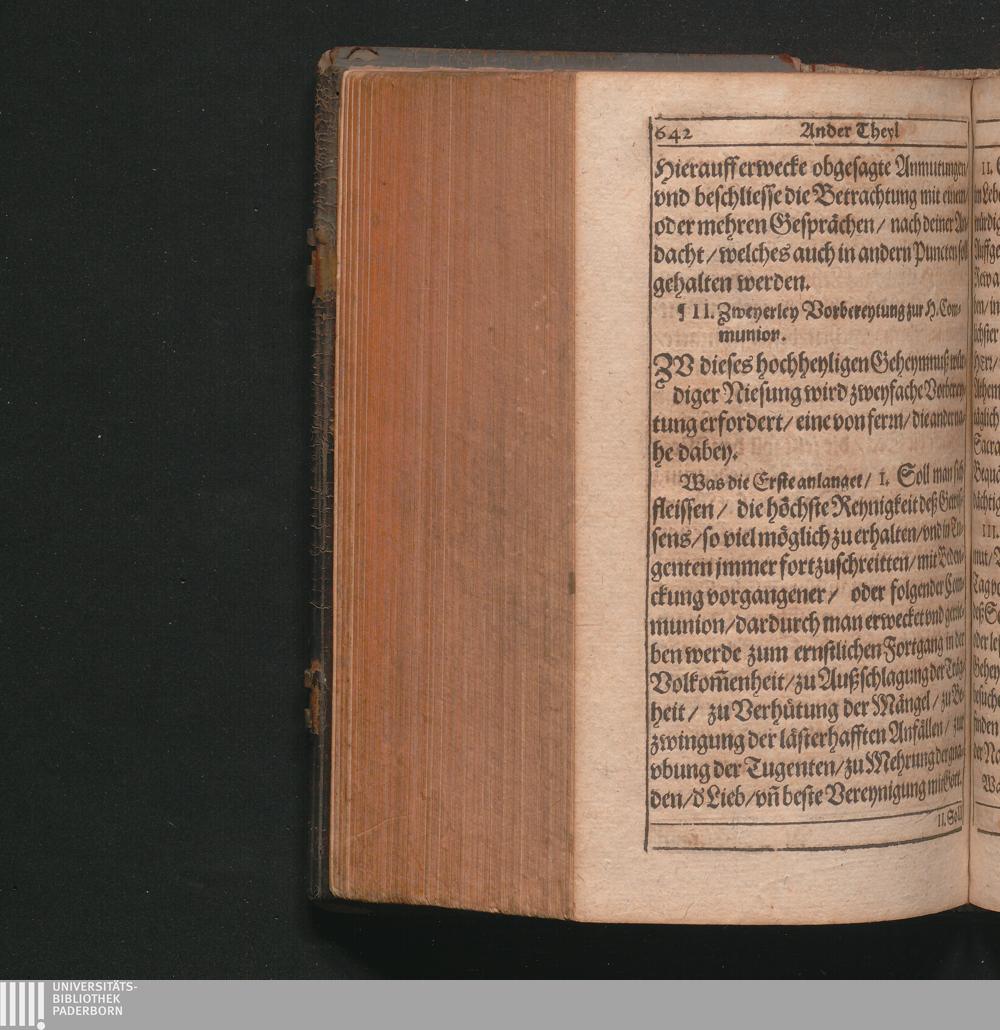 642 Ander Theyl
Hierauff erwecke obgesagte Anmutungen/
vnd beschliesse die Betrachtung mit einem/
oder mehren Gesprächen / nach deiner An
dacht / welches auch in andern Puncten soll
gehalten werden.
¶ II. Zweyerley Vorbereytung zur H. Com-
munion.
ZV dieses hochheyligen Geheymnuß wür-
diger Niesung wird zweyfache Vorberey-
tung erfordert / eine von ferrn / die ander na-
he dabey.
Was die Erste anlanget / I. Soll man sich
fleissen / die höchste Reynigkeit deß Gewis-
sens / so viel möglich zu erhalten / vnd in Tu-
genten jmmer fortzuschreitten / mit Beden-
ckung vorgangener / oder folgender Com-
munion / dardurch man erwecket vnd getrie-
ben werde zum ernstlichen Fortgang in der
Volkom̃enheit / zu Außschlagung der Träg-
heit / zu Verhütung der Mängel / zu Be-
zwingung der lästerhafften Anfällen / zur
vbung der Tugenten / zu Mehrung der gna-
den / d' Lieb / vñ beste Vereynigung mit Gott.
II. Soll
II.
III.
UNIVERSITÄTS-
BIBLIOTHEK
PADERBORN